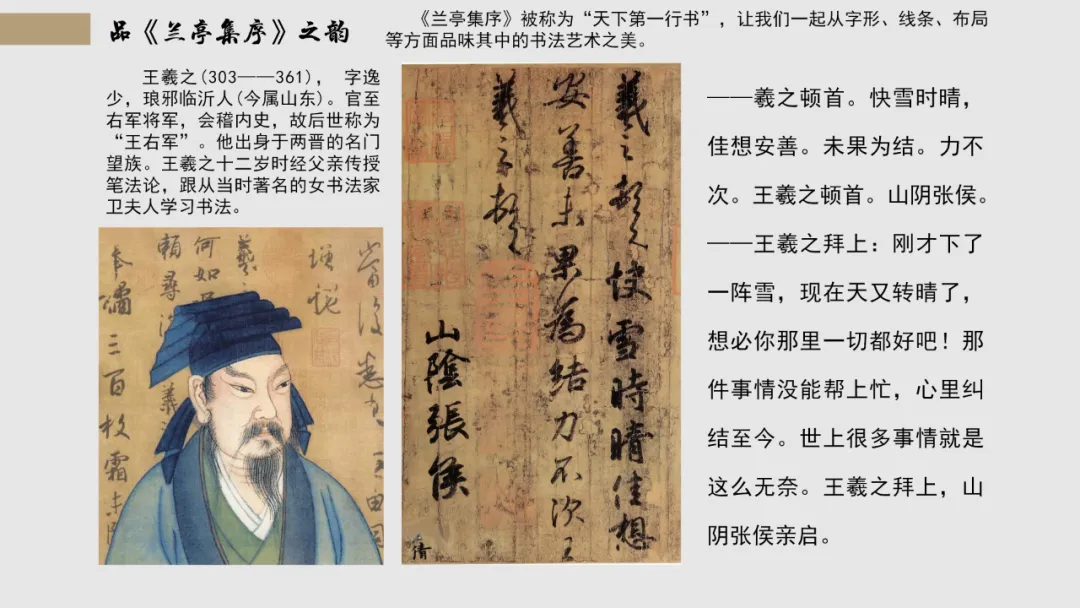 品《兰亭集序》之韵
《兰亭集序》被称为“天下第一行书”，让我们一起从字形、线条、布局
等方面品味其中的书法艺术之美。
王羲之(303——361)， 字逸
少，琅邪临沂人(今属山东)。官至
右军将军，会稽内史，故后世称为
“王右军”。他出身于两晋的名门
望族。王羲之十二岁时经父亲传授
笔法论，跟从当时著名的女书法家
卫夫人学习书法。
奉橘三百枚霜未降
賴尋
何如
羲
增慨
當復
羲之頓首快雪時晴佳想
安善未果為結力不次王
羲之頓首
山陰張侯
——羲之顿首。快雪时晴，
佳想安善。未果为结。力不
次。王羲之顿首。山阴张侯。
——王羲之拜上：刚才下了
一阵雪，现在天又转晴了，
想必你那里一切都好吧！那
件事情没能帮上忙，心里纠
结至今。世上很多事情就是
这么无奈。王羲之拜上，山
阴张侯亲启。